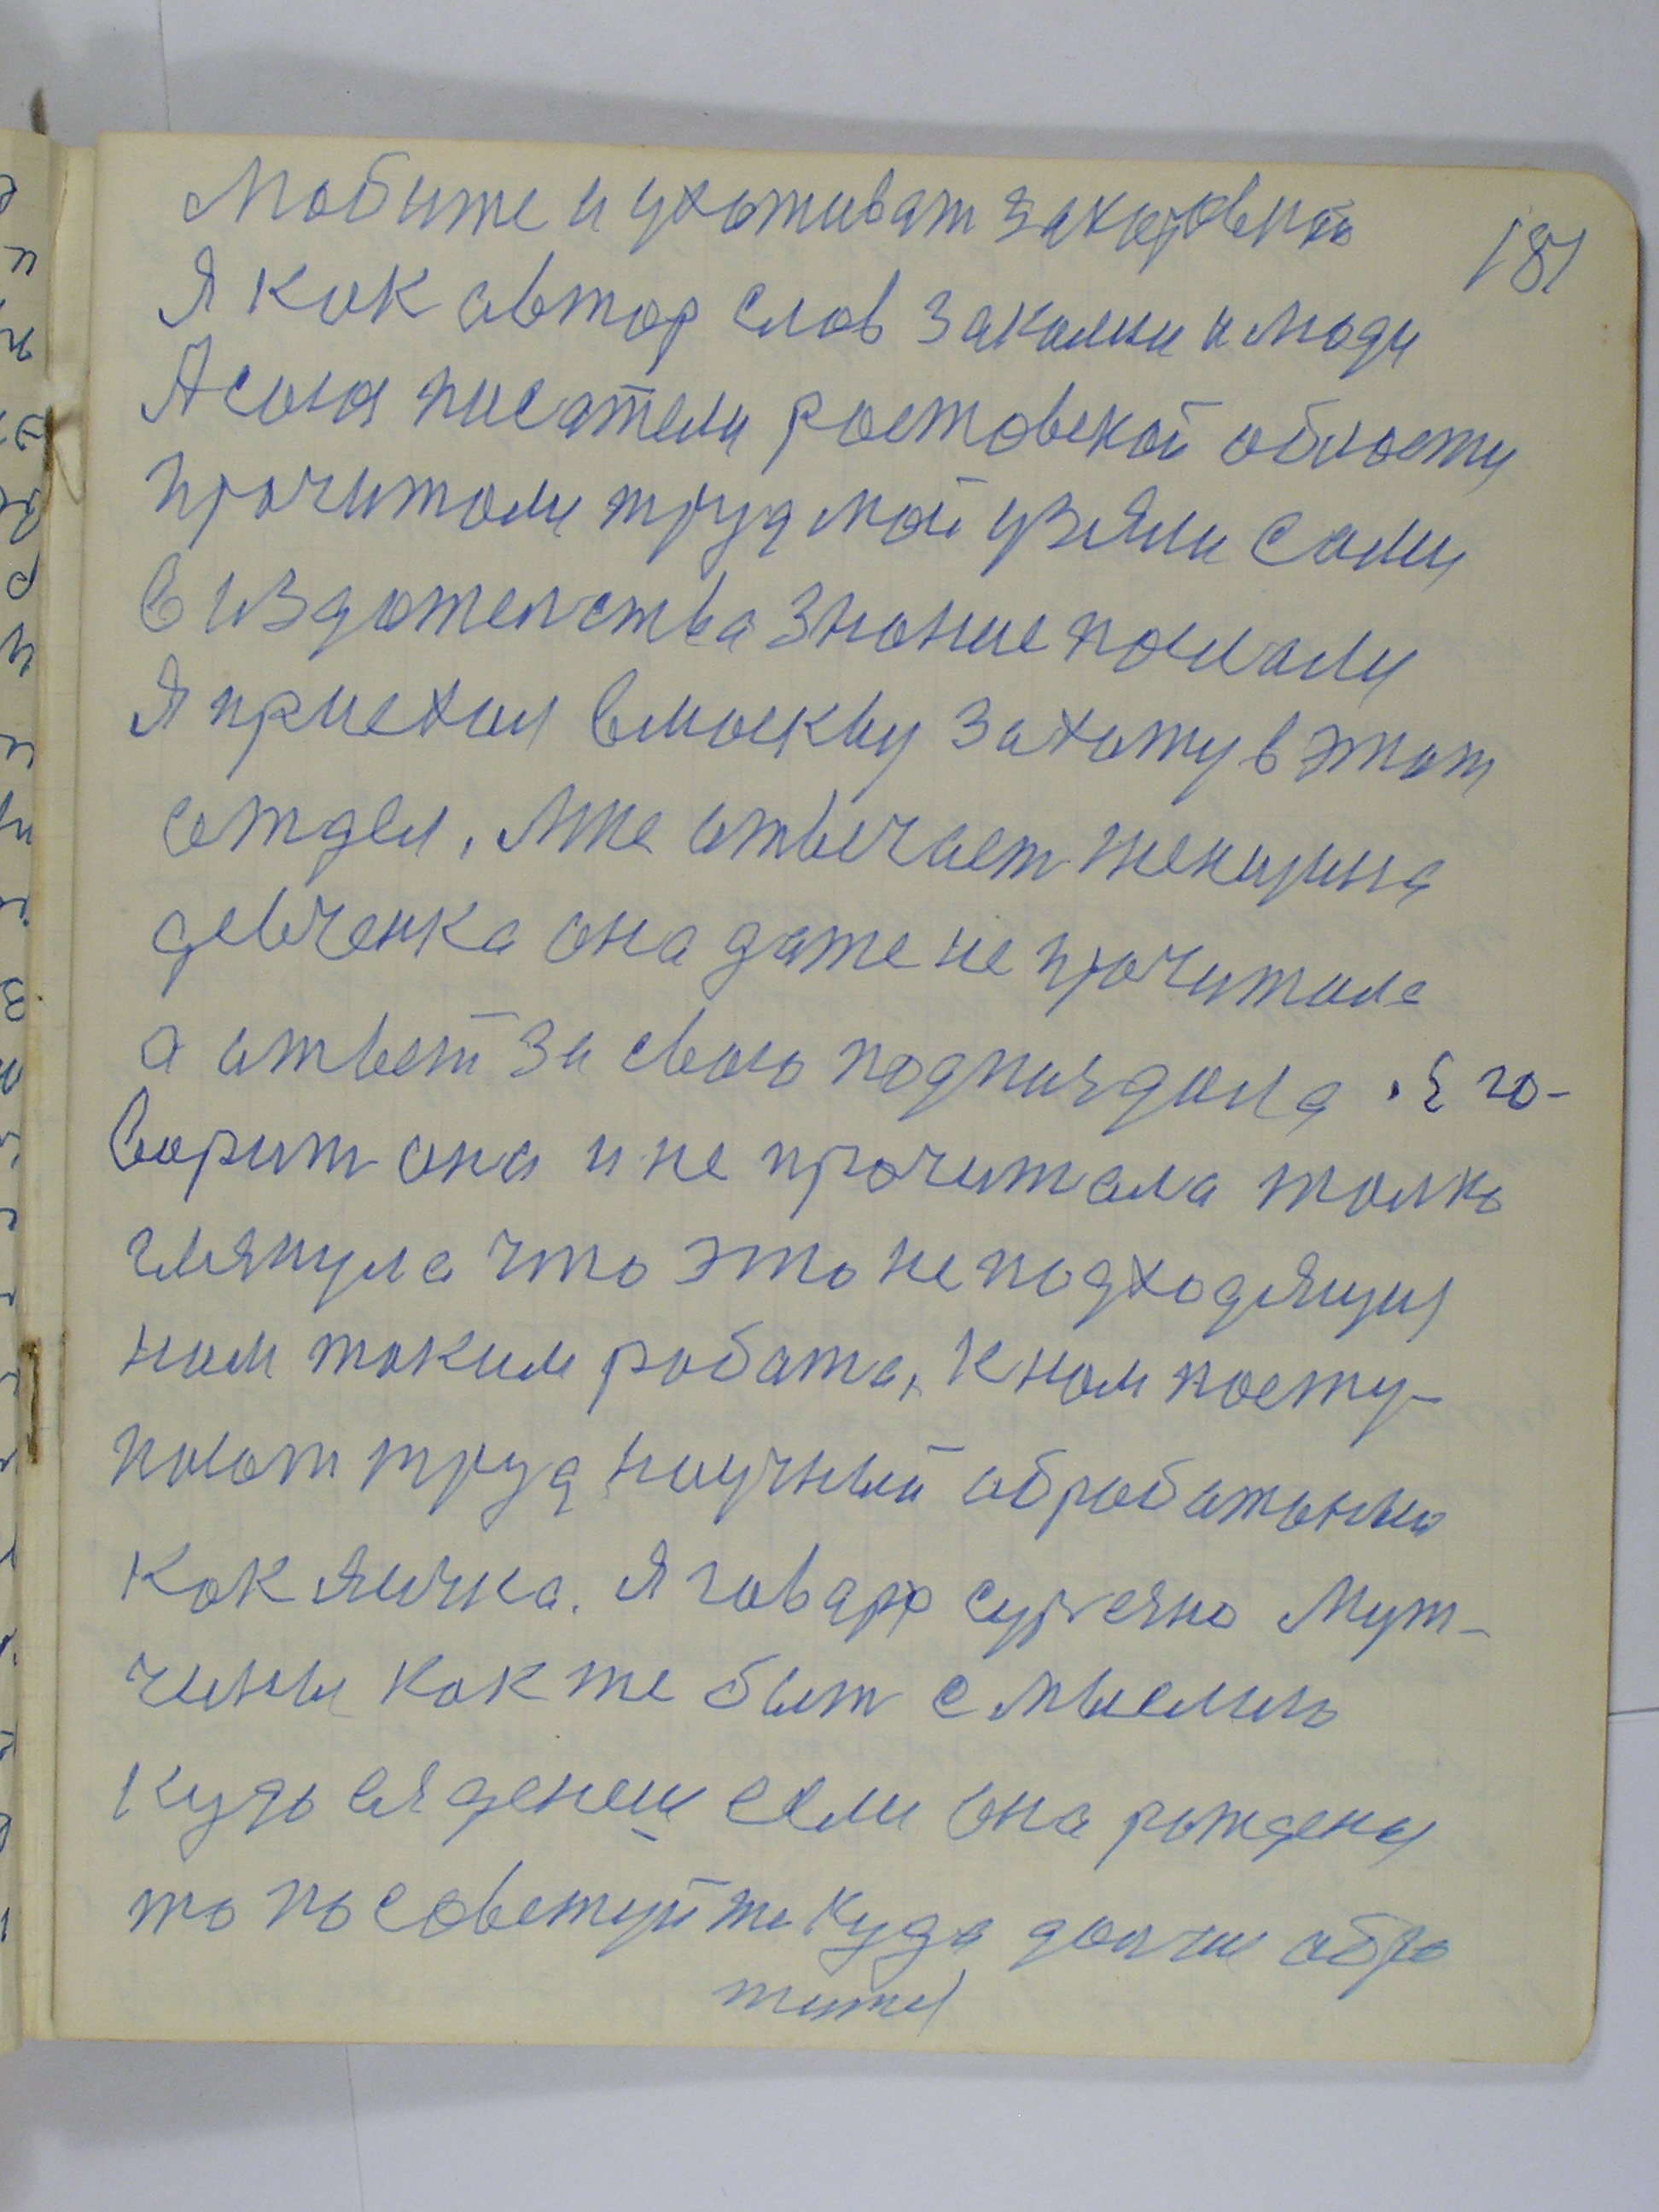 181
Любите и ухоживат за коровай
Я как автор слов закалки и люди
А сыия писатели ростовской области
прочитоли труд мой узяли сами
в издотелства Знание послали
Я приехал вмоскву захожу в этот
отдел. Мне отвечает женщина
девченка она даже не прочитала
а ответ за свою подпись дала. Е го-
ворит она и не прочитала толко
глянула что это неподходящия
нам таким работа, К нам посту-
пают труд научный обработоный
Как яичка. Я говарю сурезно Муж-
чины как же быт с мыслию
кудо ея денеш если она рождена
то посоветуйте куда далши обра
тится